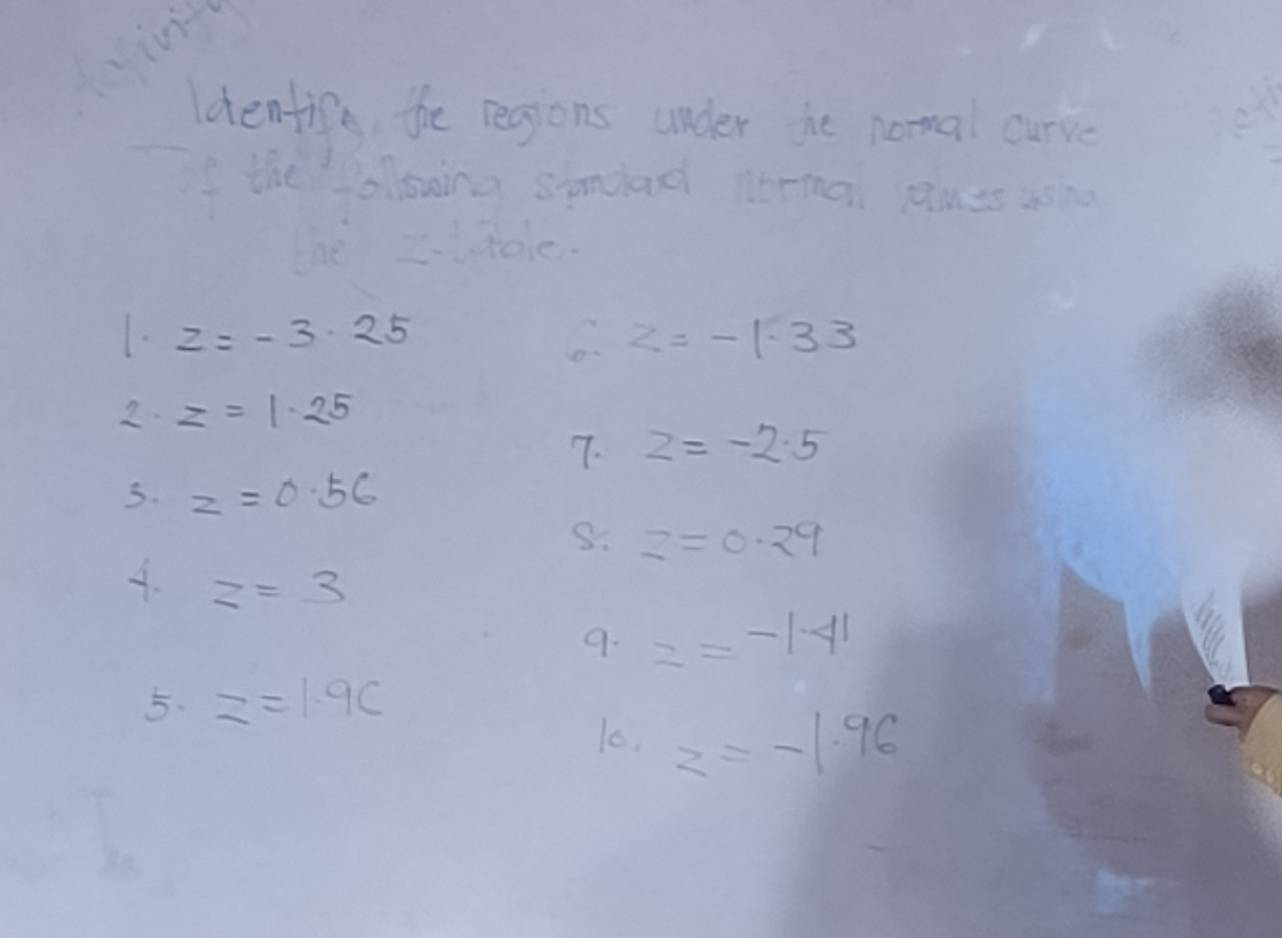 Activity
Identify the regions under the normal curve
of the following standard normal values using
the z-table.
1. z = -3.25
2. z = 1.25
3. z = 0.56
4. z = 3
5. z = 1.96
6. z = -1.33
7. z = -2.5
8. z = 0.29
9. z = -1.41
10. z = -1.96